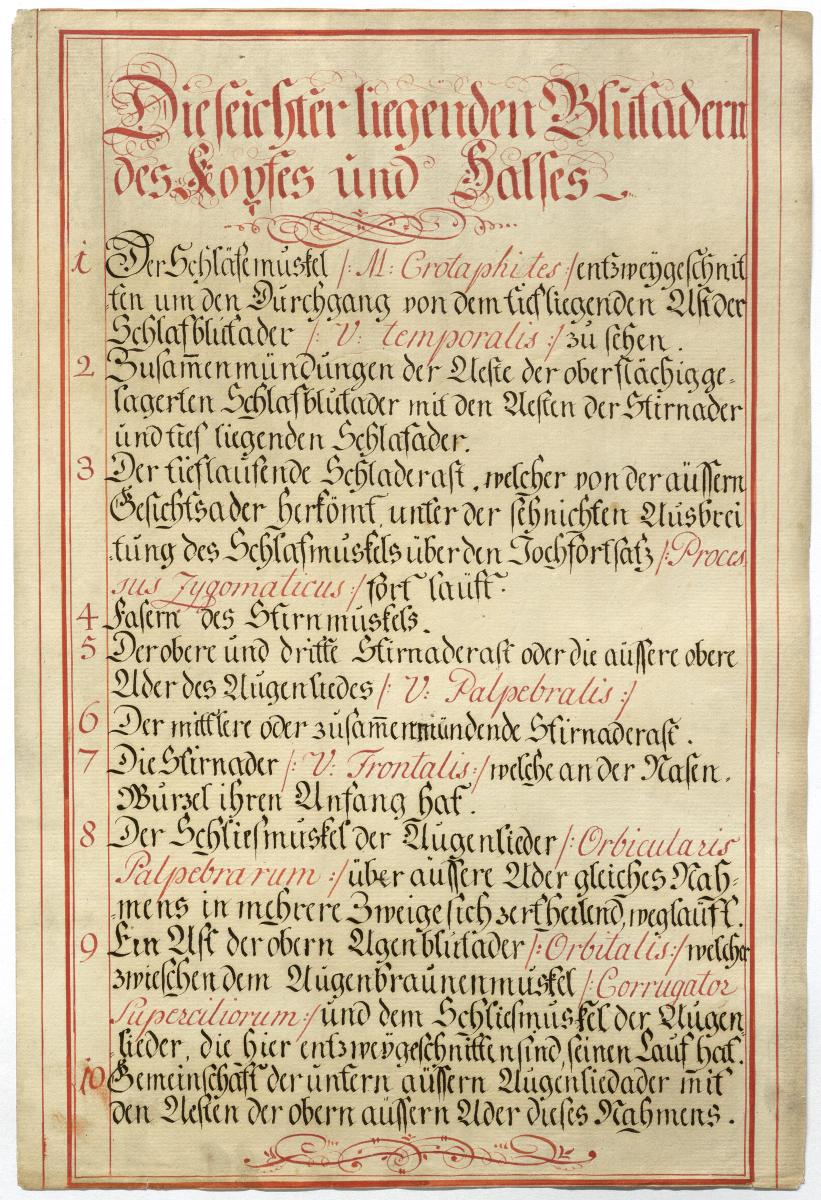 Die seichter liegenden Blutadern
des Kopfes und Halses
1 Der Schläfemuskel /: M: Crotaphites :/ entzweygeschnit
ten um den Durchgang von dem tiefliegenden Ast der
Schlafblutader /: V: temporalis :/ zu sehen.
2 Zusam̄enmündungen der Aeste der oberflächig ge-
lagerten Schlafblutader mit den Aesten der Stirnader
und tief liegenden Schlafader.
3 Der tieflaufende Schladerast, welcher von der äussern
Gesichtsader herkömt, unter der sehnichten Ausbrei
tung des Schlafmuskels über den Jochfortsatz /: Proces
sus Zygomaticus :/ fort lauft.
4 Fasern des Stirnmuskels.
5 Der obere und dritte Stirnaderast oder die äussere obere
Ader des Augenliedes /: V: Palpebralis :/
6 Der mittlere oder zusam̄enmündende Stirnaderast.
7 Die Stirnader /: V: Frontalis :/ welche an der Nasen-
Wurzel ihren Anfang hat.
8 Der Schliesmuskel der Augenlieder /: Orbicularis
Palpebrarum :/ über äussere Ader gleiches Nah-
mens in mehrere Zweige sich zertheilend, weglauft.
9 Ein Ast der obern Agenblutader /: Orbitalis :/ welcher
zwieschen dem Augenbraunenmuskel /: Corrugator
Superciliorum :/ und dem Schliesmuskel der Augen
lieder, die hier entzweygeschnitten sind, seinen Lauf hat.
10 Gemeinschaft der untern äussern Augenliedader mit
den Aesten der obern äussern Ader dieses Nahmens.